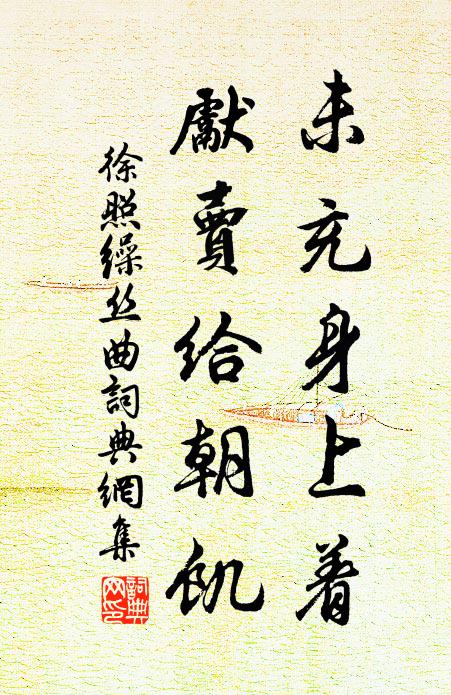 未充身上着
獻賣給朝飢
徐照繰丝曲詞典網集
詞典网印